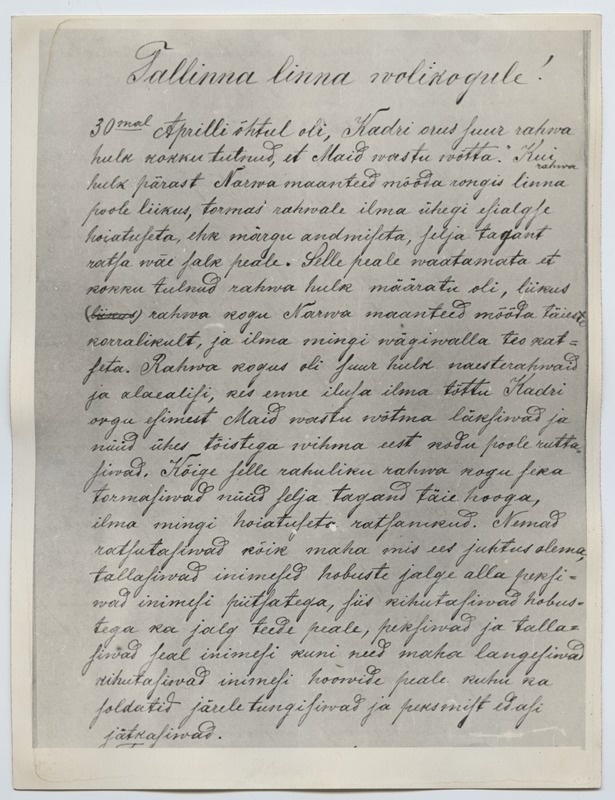 Tallinna linna wolikogule!
30mal Aprilli õhtul oli, Kadri orus suur rahwa
hulk kokku tulnud, et Maid wastu wõtta. Kui
rahwa
hulk pärast Narwa maanteed mööda rongis linna
poole liikus, tormas rahwale ilma ühegi esialgse
hoiatuseta, ehk märgu andmiseta, selja tagant
ratsa wäe salk peale. Selle peale waatamata et
kokku tulnud rahwa hulk määratu oli, liikus
(liikus) rahwa kogu Narwa maanteed mööda täieste
korralikult, ja ilma mingi wägiwalla teo kat=
seta. Rahwa kogus oli suur hulk naesterahwaid
ja alaealisi, kes enne ilusa ilma tõttu Kadri
orgu esimest Maid wastu wõtma läksiwad ja
nüüd ühes tõistega wihma eest kodu poole rutta=
siwad. Kõige selle rahuliku rahwa kogu seka
tormasiwad nüüd selja tagand täie hooga,
ilma mingi hoiatuseta ratsanikud. Nemad
ratsutasiwad kõik maha mis ees juhtus olema,
tallasiwad inimesed hobuste jalge alla peksi=
wad inimesi piitsatega, siis kihutasiwad hobus=
tega ka jalg teede peale, peksiwad ja talla=
siwad seal inimesi kuni need maha langesiwad
kihutasiwad inimesi hoowide peale kuhu ka
soldatid järele tungisiwad ja peksmist edasi
jätkasiwad.